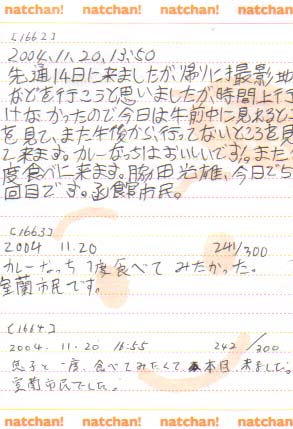 natchan! natchan! natchan! natchan!
[1662]
2004.11.20.13:50
先週14日に来ましたが帰りに撮影地
などを行こうと思いましたが、時間上行
けなかったので今日は午前中に見えるとこ
を見て、また午後から、行ってないところを見
て来ます。カレーなっちはおいしいです!。また今
度食べに来ます。 今日で5
回目です。函館市民。
[1663]
2004 11.20 241/300
カレーなっち 1度食べて みたかった。
室蘭市民です。
[1664]
2004. 11.20 16:55 242/300
息子と一度、食べてみたくて 本日、来ました。
室蘭市民でした。
natchan! natchan! natchan! natchan!